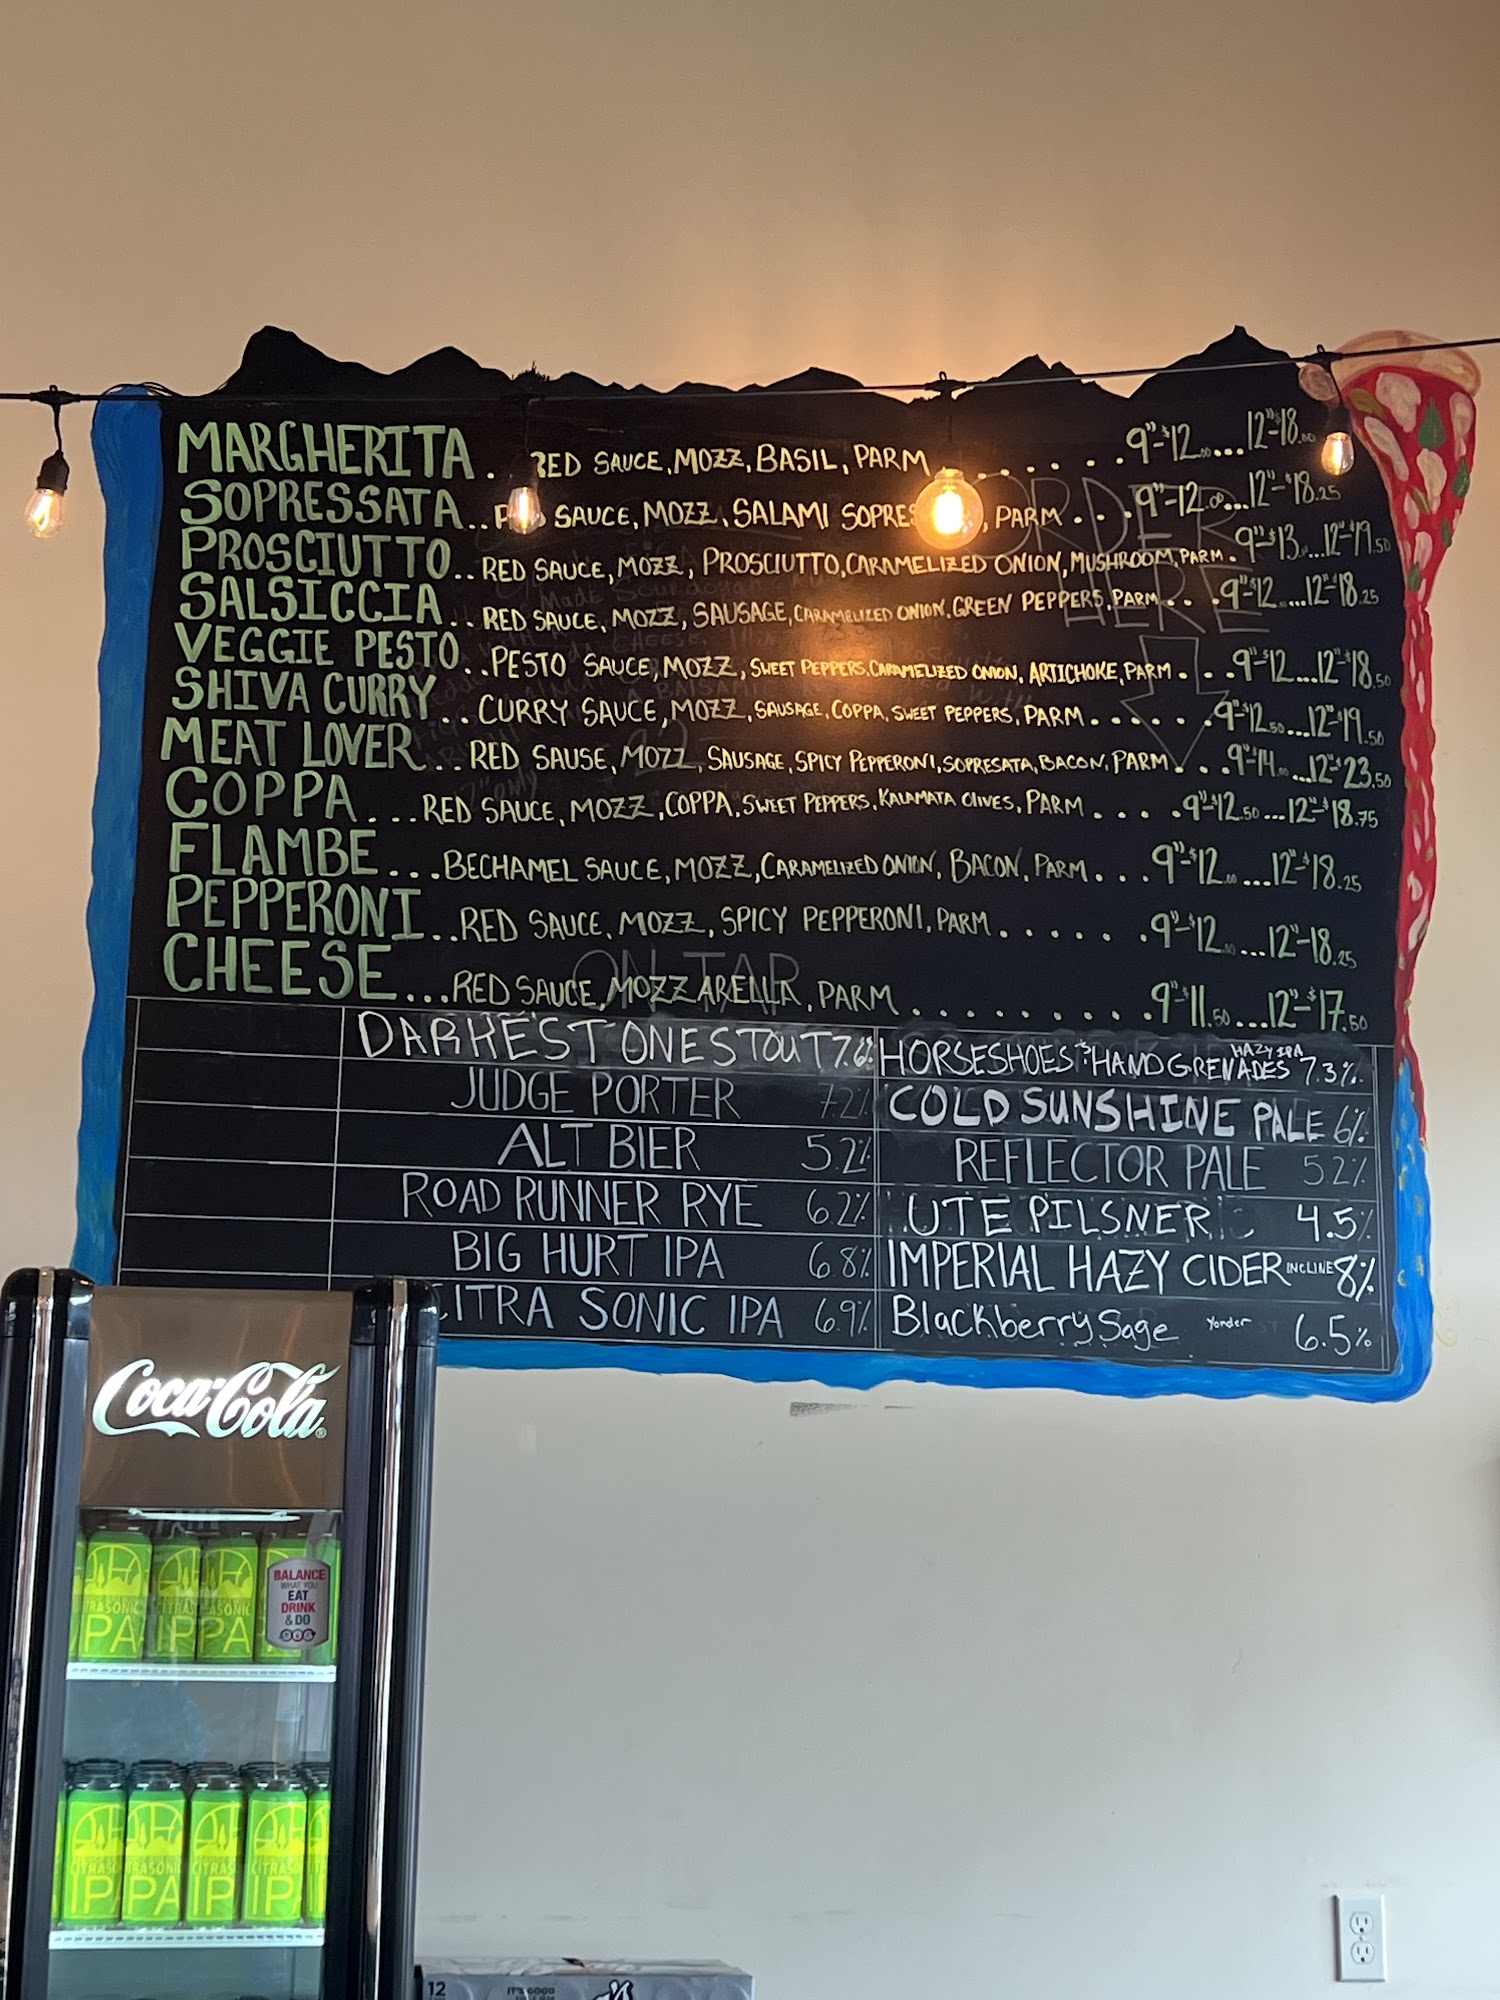 MARGHERITA . RED SAUCE, MOZZ, BASIL, PARM . . . . . . 9"-$12.00...12"-$18.00
SOPRESSATA.. SAUCE, MOZZ, SALAMI PARM . . . 9"-12.00...12"-$18.25
PROSCIUTTO.. RED SAUCE, MOZZ, PROSCIUTTO, CARAMELIZED ONION, MUSHROOM, PARM . 9"-$13. ...12"-$19.50
SALSICCIA.. RED SAUCE, MOZZ, SAUSAGE, CARAMELIZED ONION, GREEN PEPPERS, PARM . . . 9"-$12 ...12"-$18.25
VEGGIE PESTO.. PESTO SAUCE, MOZZ, SWEET PEPPERS, CARAMELIZED ONION, ARTICHOKE, PARM . . . 9"-$12....12"-$18.50
SHIVA CURRY.. CURRY SAUCE, MOZZ, SAUSAGE, COPPA, SWEET PEPPERS, PARM . . . . . . 9"-$12.50...12"-$19.50
MEAT LOVER.. RED SAUSE, MOZZ, SAUSAGE, SPICY PEPPERONI, SOPRESATA, BACON, PARM . . . 9"-$14.00 ...12"-$23.50
COPPA ... RED SAUCE, MOZZ, COPPA, SWEET PEPPERS, KALAMATA OLIVES, PARM . . . . . 9"-$12.50...12"-$18.75
FLAMBE ... BECHAMEL SAUCE, MOZZ, CARAMELIZED ONION, BACON, PARM . . . 9"-$12.00...12"-$18.25
PEPPERONI .. RED SAUCE, MOZZ, SPICY PEPPERONI, PARM . . . . . . . 9"-$12.00...12"-18.25
CHEESE ... RED SAUCE, MOZZARELLA, PARM . . . . . . . . . . 9"-$11.50...12"-$17.50
ORDER
HERE
ON TAP
DARKEST ONE STOUT 7.6%
JUDGE PORTER 7.2%
ALT BIER 5.2%
ROAD RUNNER RYE 6.2%
BIG HURT IPA 6.8%
CITRA SONIC IPA 6.9%
HORSESHOES & HAND GRENADES HAZY IPA 7.3%
COLD SUNSHINE PALE 6%
REFLECTOR PALE 5.2%
UTE PILSNER 4.5%
IMPERIAL HAZY CIDER INCLINE 8%
Blackberry Sage Yonder 6.5%
Coca-Cola
BALANCE
WHAT YOU
EAT
DRINK
& DO
CITRASONIC
IPA
12
IT'S GOOD